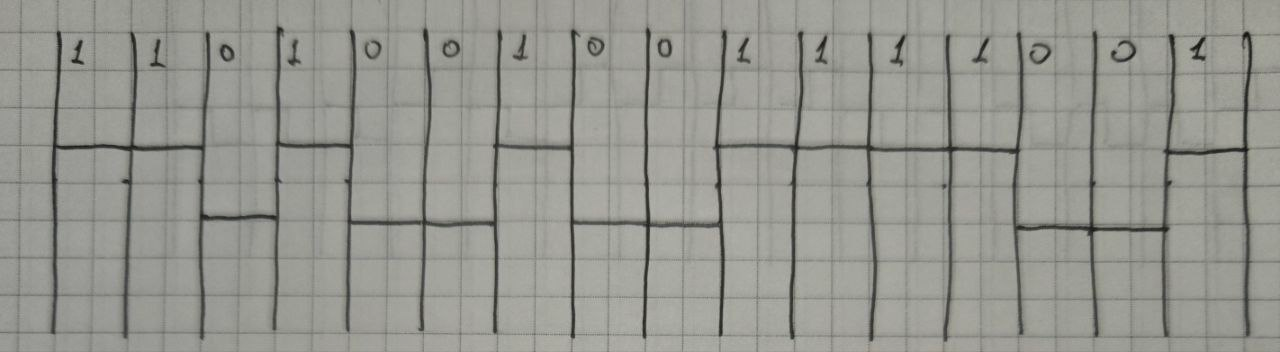 1 1 0 1 0 0 1 0 0 1 1 1 1 0 0 1